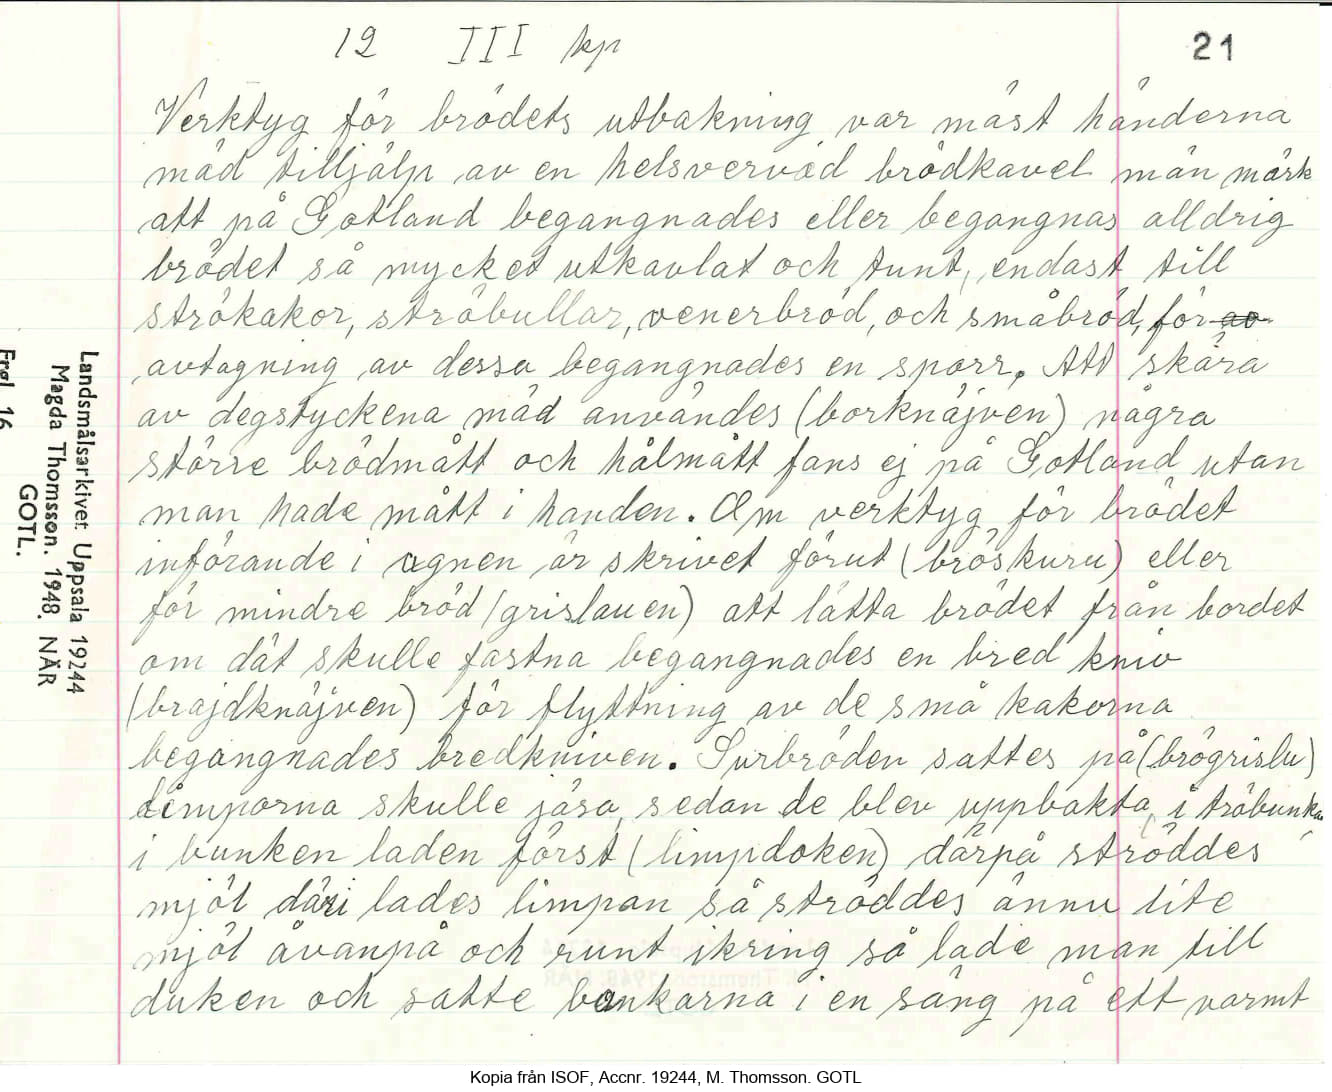 12 III kp
21
Verktyg för brödets utbakning var mäst händerna
mäd tilljälp av en helsverväd brödkavel män märk
att på Gotland begangnades eller begangnas alldrig
brödet så mycket utkavlat och tunt, endast till
strökakor, ströbullar, venerbröd, och småbröd, för av
avtagning av dessa begangnades en sporr. Att skära
av degstyckena mäd användes (borknäjven) några
större brödmått och hålmått fans ej på Gotland utan
man hade mått i handen. Om verktyg för brödet
införande i ugnen är skrivet förut (bröskuru) eller
för mindre bröd (grislauen) att lätta brödet från bordet
om dät skulle fastna begangnades en bred kniv
(brajdknäjven) för flyttning av de små kakorna
begangnades bredkniven. Surbröden sattes på (brögrislu)
limporna skulle jäsa, sedan de blev uppbakta, i träbunkar
i bunken laden först (limpdoken) därpå ströddes
mjöl däri lades limpan så ströddes ännu lite
mjöl åvanpå och runt ikring så lade man till
duken och satte bonkarna i en säng på ett varmt
Landsmålsarkivet Uppsala 19244
Magda Thomsson. 1948. NÄR
GOTL.
Frgl. 16
Kopia från ISOF, Accnr. 19244, M. Thomsson. GOTL